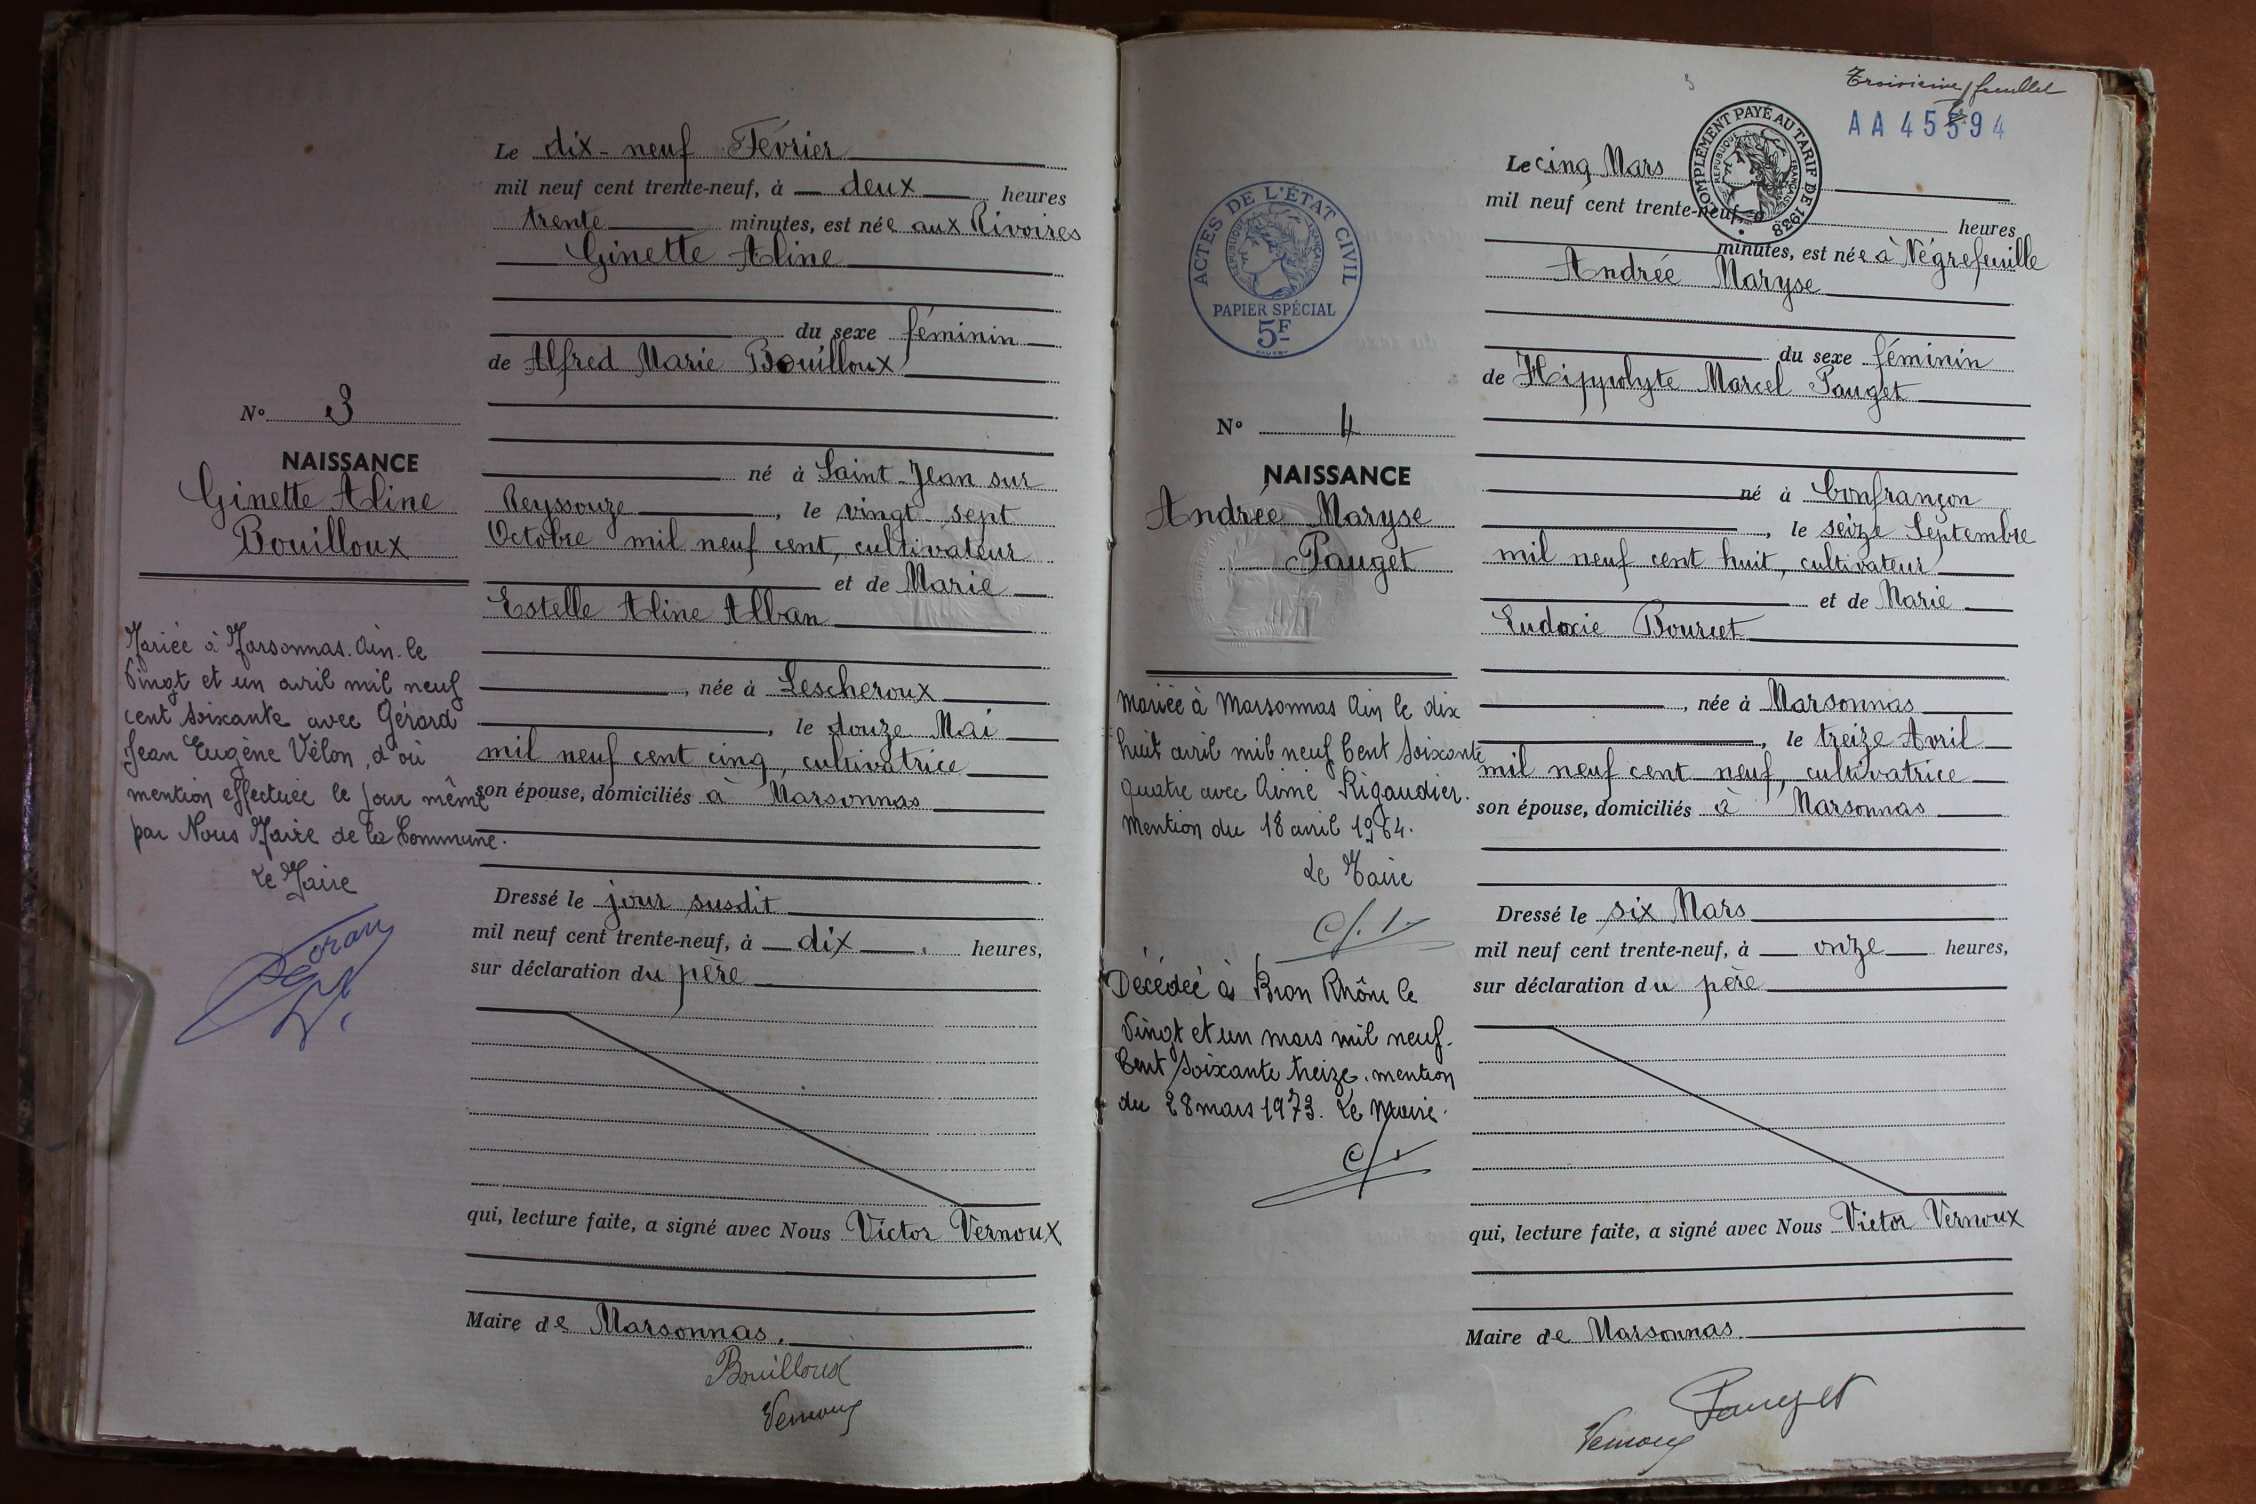 Le dix-neuf Février
mil neuf cent trente-neuf, à deux heures
trente minutes, est née aux Rivoires
Ginette Aline
du sexe féminin
de Alfred Marie Bouilloux
N° 3
NAISSANCE
Ginette Aline
Bouilloux
né à Saint-Jean sur
Reyssouze, le vingt sept
Octobre mil neuf cent, cultivateur
et de Marie
Estelle Aline Alban
née à Lescheroux
, le douze Mai
mil neuf cent cinq, cultivatrice
son épouse, domiciliés à Marsonnas
Mariée à Marsonnas. Ain. le
vingt et un avril mil neuf
cent soixante avec Gérard
Jean Eugène Vélon, d'où
mention effectuée le jour même
par Nous Maire de la Commune.
Le Maire
Dressé le jour susdit
mil neuf cent trente-neuf, à dix heures,
sur déclaration du père
qui, lecture faite, a signé avec Nous Victor Vernoux
Maire de Marsonnas.
Bouilloux
Vernoux
Troisième feuillet
3
AA 45594
COMPLÉMENT PAYÉ AU TARIF DE 1938
RÉPUBLIQUE FRANÇAISE
Le cinq Mars
mil neuf cent trente-neuf à heures
minutes, est née à Négrefeuille
Andrée Maryse
du sexe féminin
de Hippolyte Marcel Pauget
ACTES DE L'ÉTAT CIVIL
RÉPUBLIQUE FRANÇAISE
PAPIER SPÉCIAL
5F
N° 4
NAISSANCE
Andrée Maryse
Pauget
né à Confrançon
, le seize Septembre
mil neuf cent huit, cultivateur
et de Marie
Eudoxie Bourcet
, née à Marsonnas
, le treize Avril
mil neuf cent neuf, cultivatrice
son épouse, domiciliés à Marsonnas
Mariée à Marsonnas Ain le dix
huit avril mil neuf Cent soixante
quatre avec Aimé Rigaudier.
Mention du 18 avril 1964.
Le Maire
Décédée à Bron Rhône le
vingt et un mars mil neuf
Cent soixante treize. mention
du 28 mars 1973. Le Maire.
Dressé le six Mars
mil neuf cent trente-neuf, à onze heures,
sur déclaration du père
qui, lecture faite, a signé avec Nous Victor Vernoux
Maire de Marsonnas.
Pauget
Vernoux